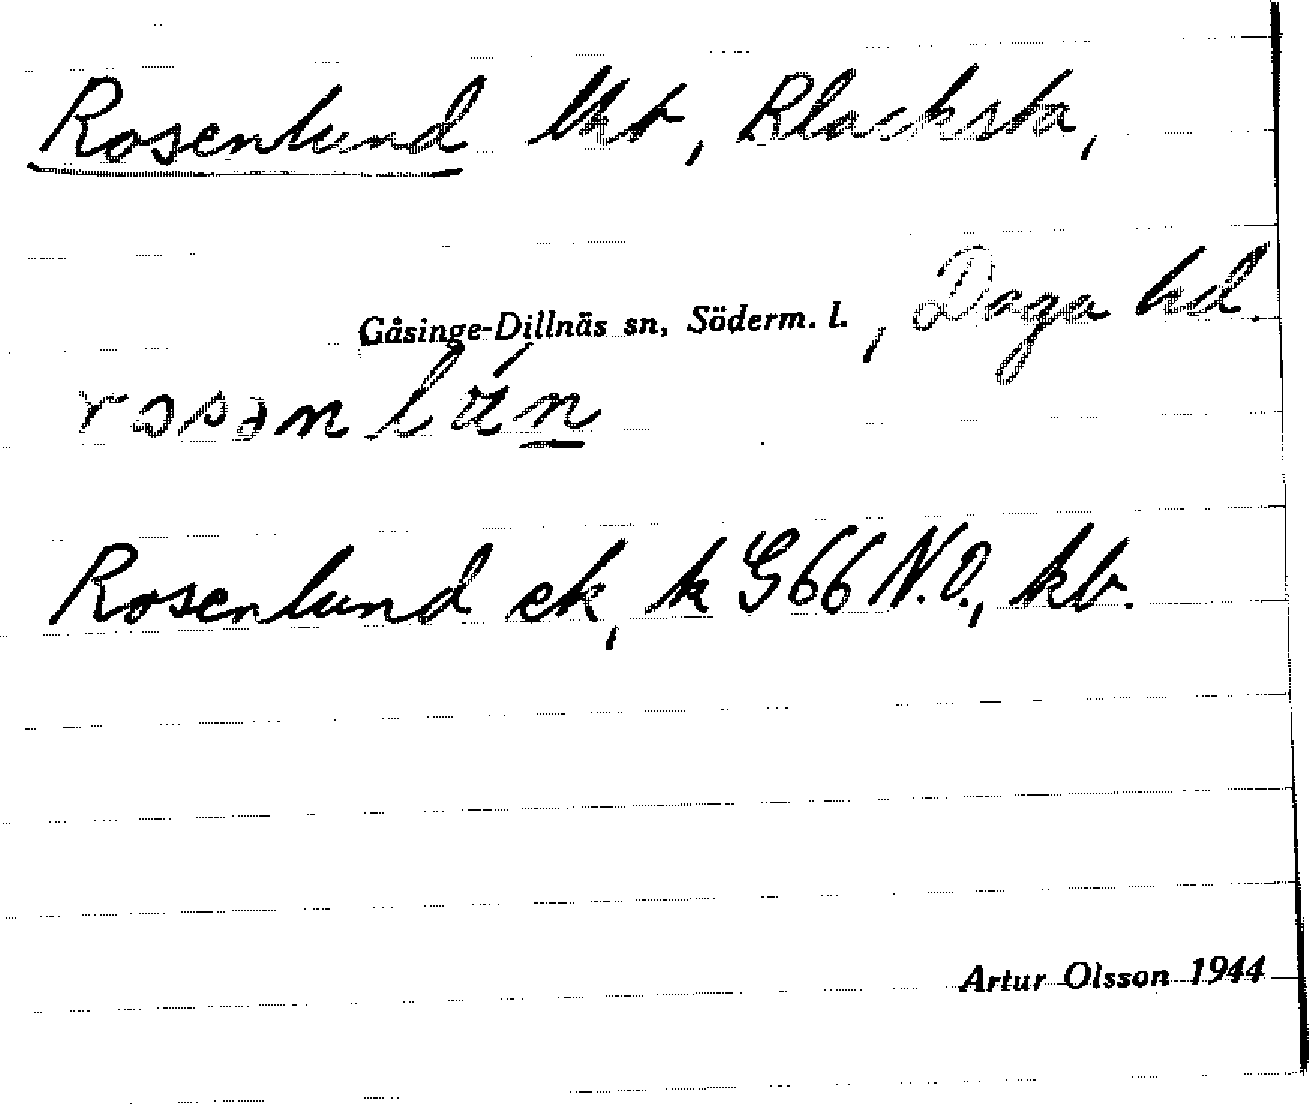 Rosenlund lht, Blacksta,
Gåsinge-Dillnäs sn, Söderm. l., Daga hd.
Rosenlund ek, k G66 N.O., kb.
Artur Olsson 1944